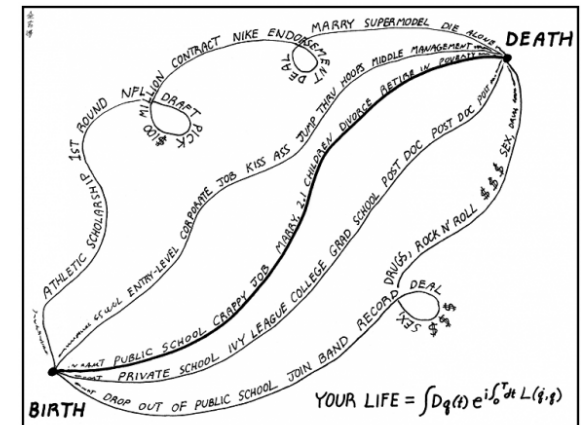 MARRY SUPERMODEL DIE ALONE
DEATH
ATHLETIC SCHOLARSHIP 1ST ROUND NFL DRAFT PICK $100 MILLION CONTRACT NIKE ENDORSEMENT DEAL
ENTRY-LEVEL CORPORATE JOB KISS ASS JUMP THRU HOOPS MIDDLE MANAGEMENT
PUBLIC SCHOOL CRAPPY JOB MARRY, 2.1 CHILDREN DIVORCE RETIRE IN POVERTY
PRIVATE SCHOOL IVY LEAGUE COLLEGE GRAD SCHOOL POST DOC POST DOC POST DOC POST
DROP OUT OF PUBLIC SCHOOL JOIN BAND RECORD DEAL $$$ $ SEX, DRUGS, ROCK N' ROLL $ $ $ SEX, DRUGS
BIRTH
YOUR LIFE = ∫Dq(t) e^{i∫₀ᵀdt L(q̇,q)}